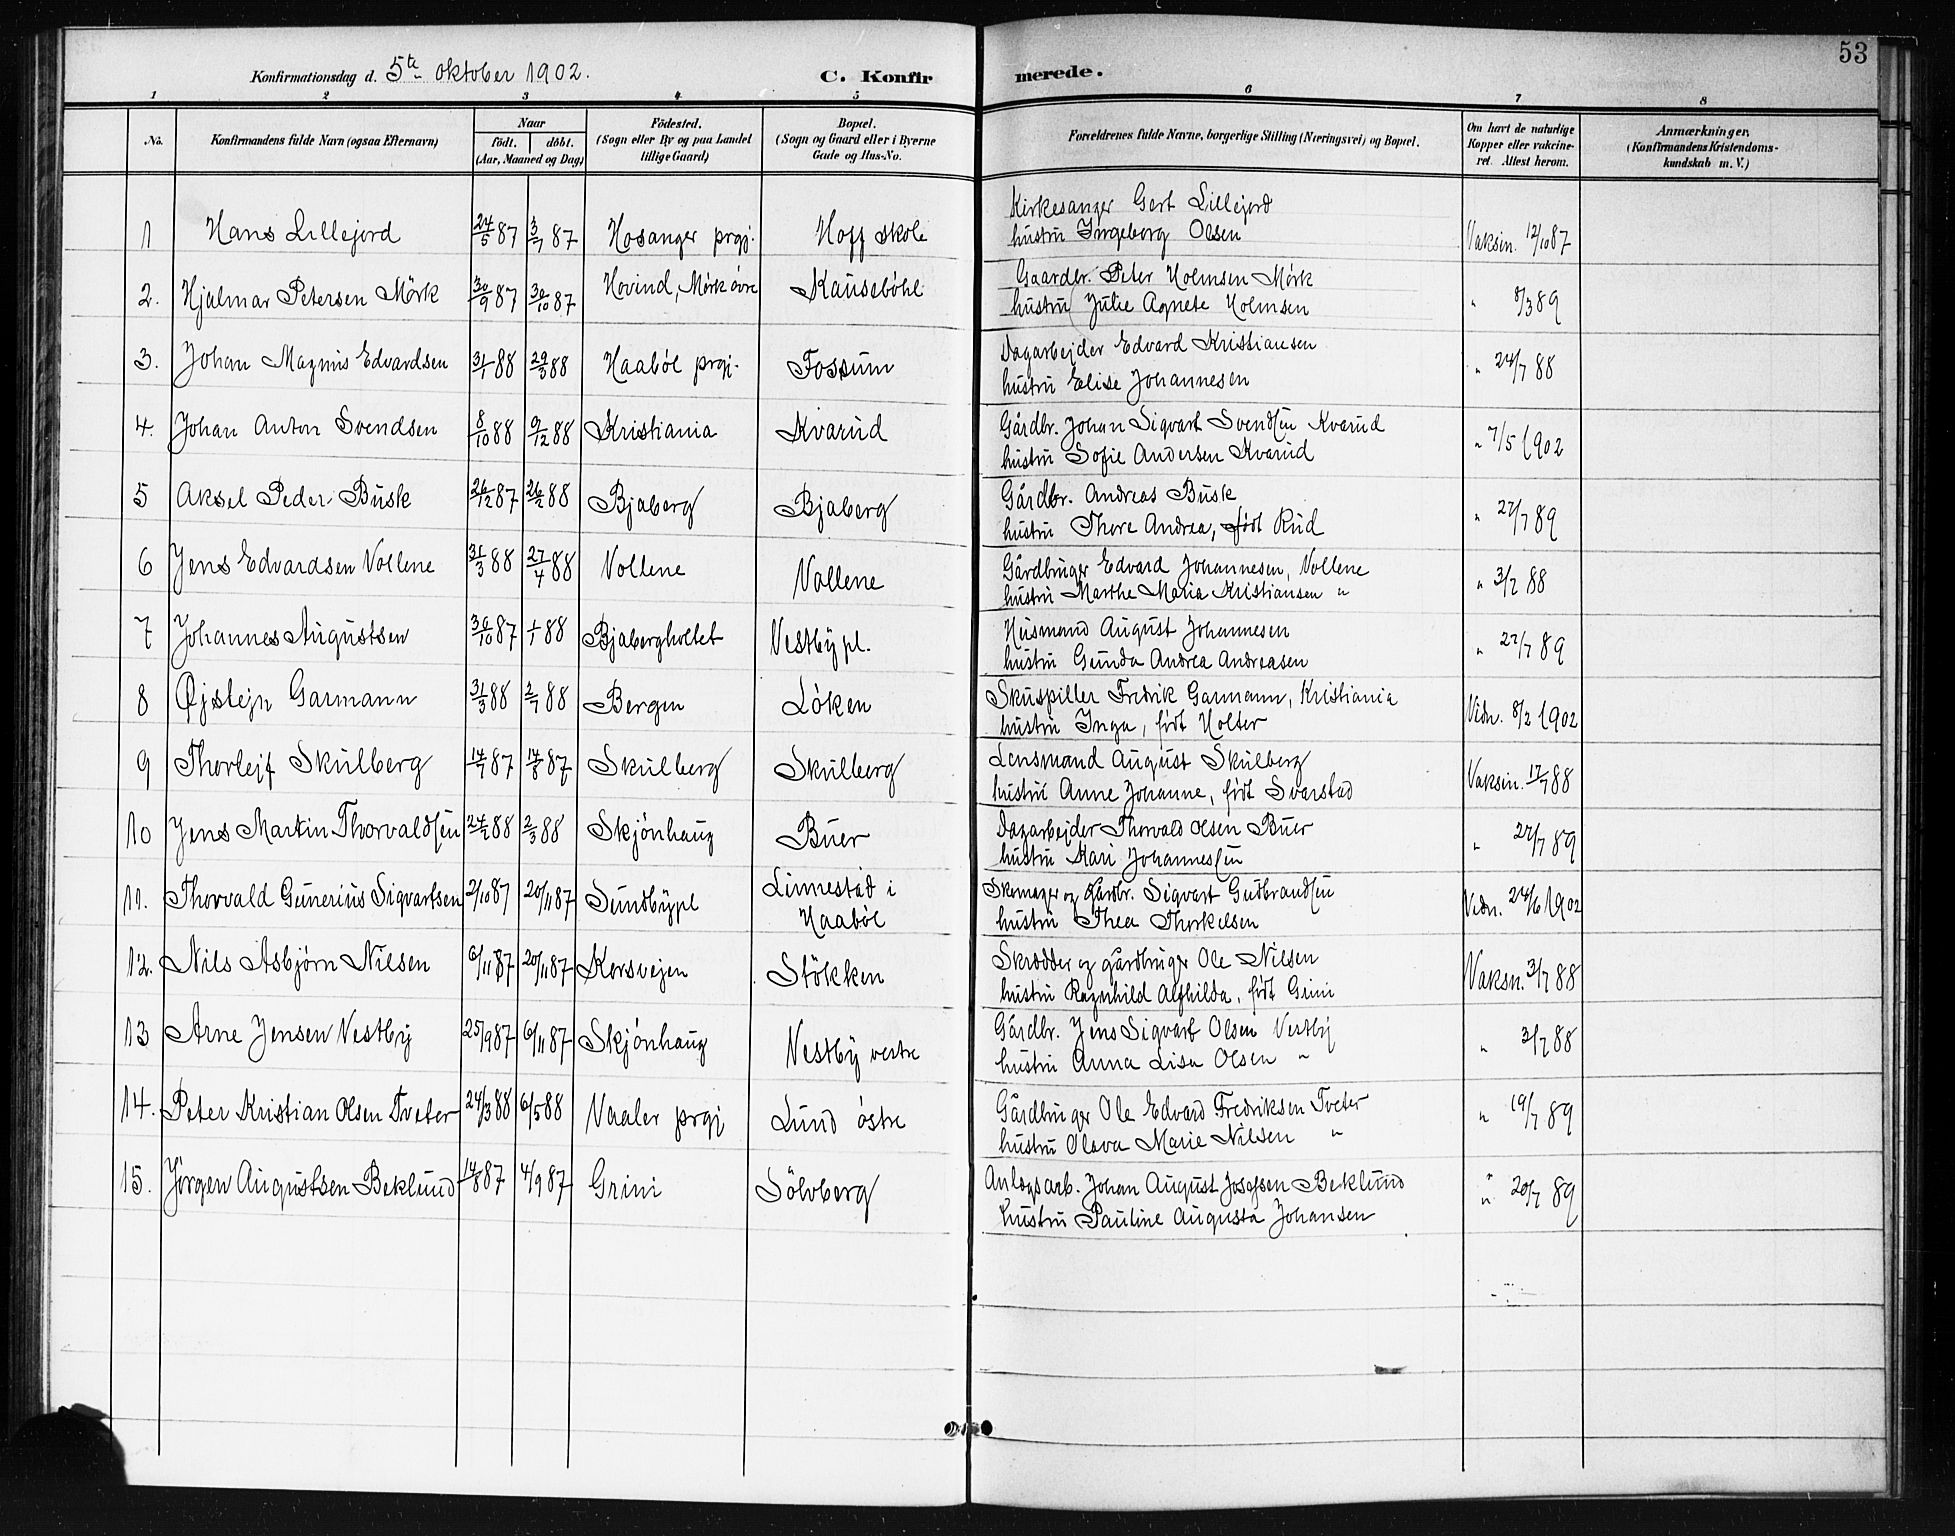 53
Konfirmationsdag d. 5te oktober 1902. C. Konfirmerede.
1 2 3 4 5 6 7 8
No. | Konfirmandens fulde Navn (ogsaa Efternavn) | Naar født. døbt. (Aar, Maaned og Dag) | Fødested. (Sogn eller By og paa Landet tillige Gaard) | Bopæl. (Sogn og Gaard eller i Byerne Gade og Hus-No. | Forældrenes fulde Navne, borgerlige Stilling (Næringsvei) og Bopæl. | Om havt de naturlige Kopper eller vakcineret. Attest herom. | Anmærkninger. (Konfirmandens Kristendomskundskab m. V.)
1 Hans Lillejord 24/5 87 3/7 87 Hosanger prgj. Hoff skole Kirkesanger Gert Lillejord
hustru Ingeborg Olsen Vaksin. 12/10 87
2. Hjalmar Petersen Mörk 30/9 87 30/10 87 Hovind, Mørk övre Kausebøhl Gaardbr. Peter Holmsen Mörk
hustru Julie Agnete Holmsen " 8/3 89
3. Johan Magnus Edvardsen 31/1 88 29/3 88 Haabøl prgj. Fossum Dagarbejder Edvard Kristiansen
hustru Elise Johannesen " 24/7 88
4. Johan Anton Svendsen 8/10 88 9/12 88 Kristiania Kvarud Gårdbr. Johan Sigvart Svendsen Kvarud
hustru Sofie Andersen Kvarud " 7/5 1902
5 Aksel Peder Busk 26/12 87 26/2 88 Bjaberg Bjaberg Gårdbr. Andreas Busk
hustru Thore Andrea, født Rud " 27/7 89
6 Jens Edvardsen Vollene 31/3 88 27/4 88 Vollene Vollene Gårdbruger Edvard Johannesen, Vollene
hustru Marthe Maria Kristiansen " " 3/7 88
7 Johannes Augustsen 30/10 87 1/1 88 Bjabergholtet Vestbÿ pl. Husmand August Johannesen
hustru Gunda Andrea Andreasen " 27/7 89
8 Øjstejn Garmann 31/3 88 2/7 88 Bergen Löken Skuspiller Fredrik Garmann, Kristiania
hustru Inga, født Holter Vidn. 8/2 1902
9 Thorlejf Skulberg 14/7 87 14/8 87 Skulberg Skulberg Lensmand August Skulberg
hustru Anne Johanne, født Svarstad Vaksin. 17/7 88
10 Jens Martin Thorvaldsen 24/2 88 2/3 88 Skjönhaug Buer Dagarbejder Thorvald Olsen Buer
hustru Kari Johannessen " 27/7 89
11. Thorvald Gunerius Sigvartsen 2/10 87 20/11 87 Sundbÿpl Linnestad i Haabøl Skomager og Gårdbr. Sigvart Gudbrandsen
hustru Thea Thorkelsen Vidn. 24/6 1902
12. Nils Asbjørn Nilsen 6/11 87 20/11 87 Korsvejen Stökken Skrædder og gårdbruger Ole Nilsen
hustru Ragnhild Alfhilda, født Grini Vaksn. 3/7 88
13 Arne Jensen Vestby 25/9 87 6/11 87 Skjönhaug Vestbÿ vestre Gårdbr. Jens Sigvart Olsen Vestby
hustru Anna Lisa Olsen " " 3/7 88
14. Peter Kristian Olsen Tveter 24/3 88 6/5 88 Vaaler prgj Lund östre Gårdbruger Ole Edvard Fredriksen Tveter
hustru Olava Marie Nilsen " " 19/7 89
15. Jørgen Augustsen Beklund 14/8 87 4/9 87 Grini Sölvberg Anlægsarb. Johan August Josefsen Beklund
hustru Pauline Augusta Johansen " 20/7 89